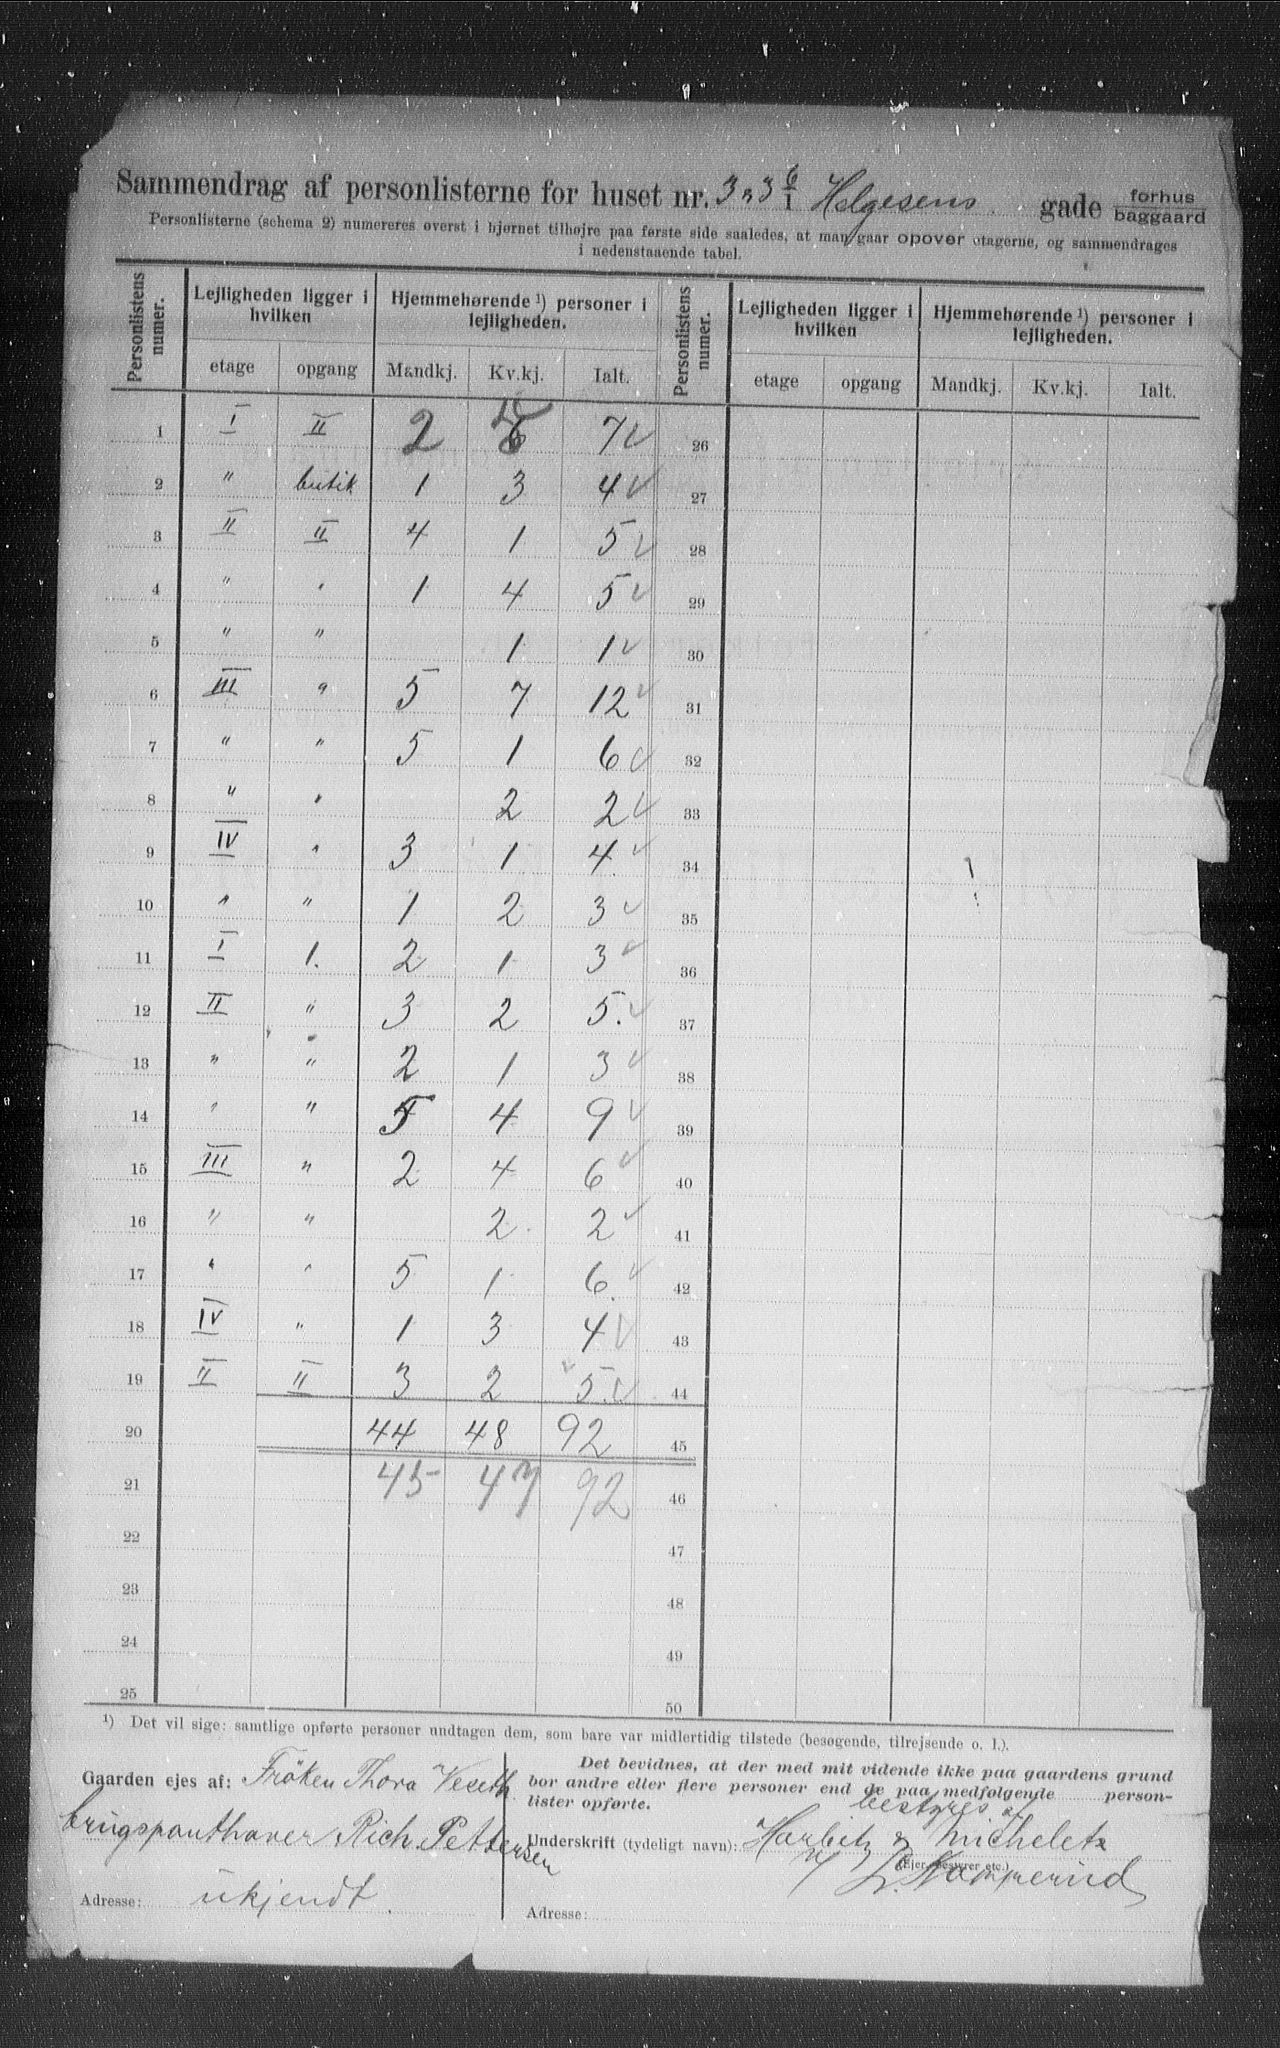 Sammendrag af personlisterne for huset nr. 3 gade forhus
Helgesens baggaard
Personlisterne (schema 2) numereres øverst i hjørnet tilhøjre paa første side saaledes, at man gaar opover etagerne, og sammendrages
i nedenstaaende tabel.
Personlistens numer. Lejligheden ligger i hvilken Hjemmehørende ¹) personer i lejligheden. Personlistens numer. Lejligheden ligger i hvilken Hjemmehørende ¹) personer i lejligheden.
etage opgang Mandkj. Kv.kj. Ialt. etage opgang Mandkj. Kv.kj. Ialt.
1 I II 2 7 26
2 " butik 1 3 4 27
3 II II 4 1 5 28
4 " " 1 4 5 29
5 " " 1 1 30
6 III " 5 7 12 31
7 " " 5 1 6 32
8 " " 2 2 33
9 IV " 3 1 4 34
10 " " 1 2 3 35
11 I 1. 2 1 3 36
12 II " 3 2 5. 37
13 " " 2 1 3 38
14 " " 5 4 9 39
15 III " 2 4 6 40
16 " " 2 2 41
17 " " 5 1 6. 42
18 IV " 1 3 4 43
19 II II 3 2 5. 44
20 44 48 92 45
21 45 47 92 46
22 47
23 48
24 49
25 50
¹) Det vil sige: samtlige opførte personer undtagen dem, som bare var midlertidig tilstede (besøgende, tilrejsende o. l.).
Gaarden ejes af: Fröken Thora Veseth
brugspanthaver Rich. Pettersen
Adresse: ukjendt.
Det bevidnes, at der med mit vidende ikke paa gaardens grund
bor andre eller flere personer end de paa medfølgende person-
lister opførte.
bestyres af
Underskrift (tydeligt navn): Harbitz & Michelet
(Ejer, bestyrer etc.)
Adresse: